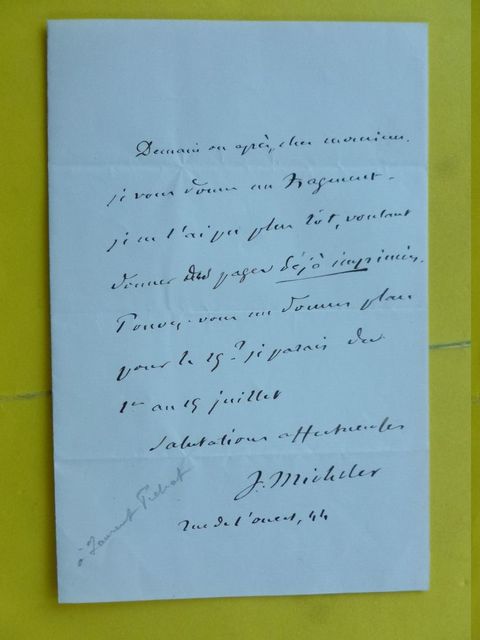 Demain ou après, cher monsieur,
je vous donne un fragment.
je ne l'ai pu plus tôt, voulant
donner des pages déjà imprimées.
Pouvez-vous me donner place
pour le 15? je parais du
1er au 15 juillet
Salutations affectueuses
J. Michelet
rue de l'ouest, 44
à Laurent Pichat